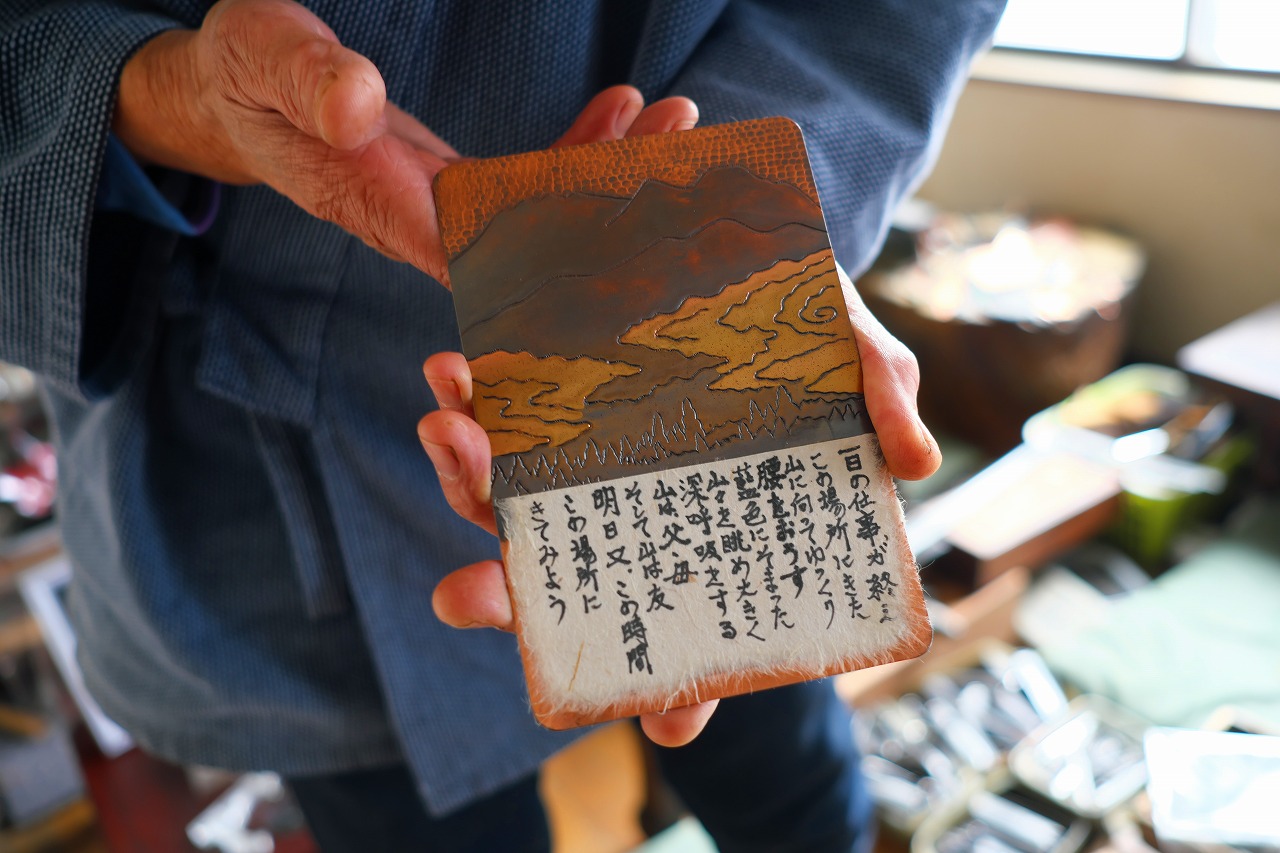 一日の仕事が終え
この場所にきた
山に向ってゆっくり
腰をおろす
藍色にそまった
山々を眺め大きく
深呼吸をする
山は父・母
そして山は友
明日又この時間
この場所に
きてみよう